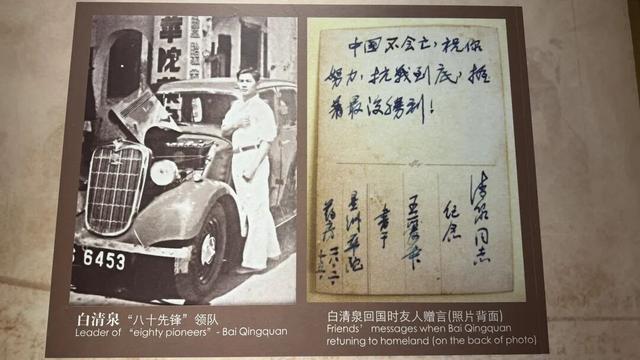 華陀
6453
中国不会亡,祝你
努力,抗战到底,
着最後勝利!
清泉同志
纪念
書于
星洲華陀
药房
白清泉 “八十先锋” 领队
Leader of “eighty pioneers” - Bai Qingquan
白清泉回国时友人赠言(照片背面)
Friends’ messages when Bai Qingquan
retuning to homeland (on the back of photo)